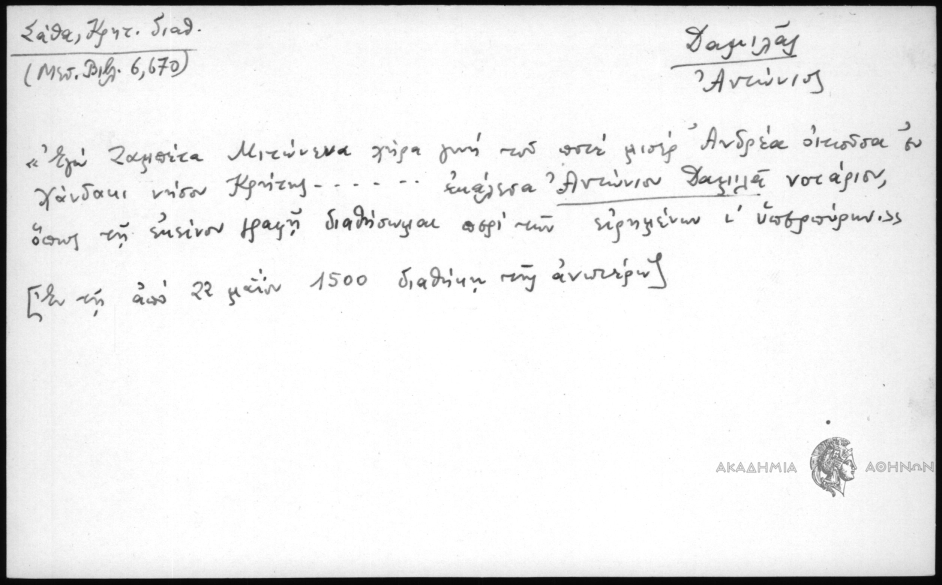 Σάθα, Κρητ. διαθ.
(Μεσ. Βιβλ. 6,670)
Δαμιλᾶς
Ἀντώνιος
«Ἐγὼ Ζαμπέτα Μιτώνενα χήρα γυνή τοῦ ποτέ μισέρ Ἀνδρέα ὁποῦσα ἐν
Χάνδακι νήσου Κρήτης . . . . . . ἐκάλεσα Ἀντώνιον Δαμιλᾶ νοτάριον,
ὅπως τῇ ἐκείνου γραφῇ διαθήσωμαι περί τῶν εἰρημένων ι' ὑπερπύρων.»
[Ἐν τῇ ἀπό 22 μαΐου 1500 διαθήκῃ τῆς ἀνωτέρω]
ΑΚΑΔΗΜΙΑ ΑΘΗΝΩΝ